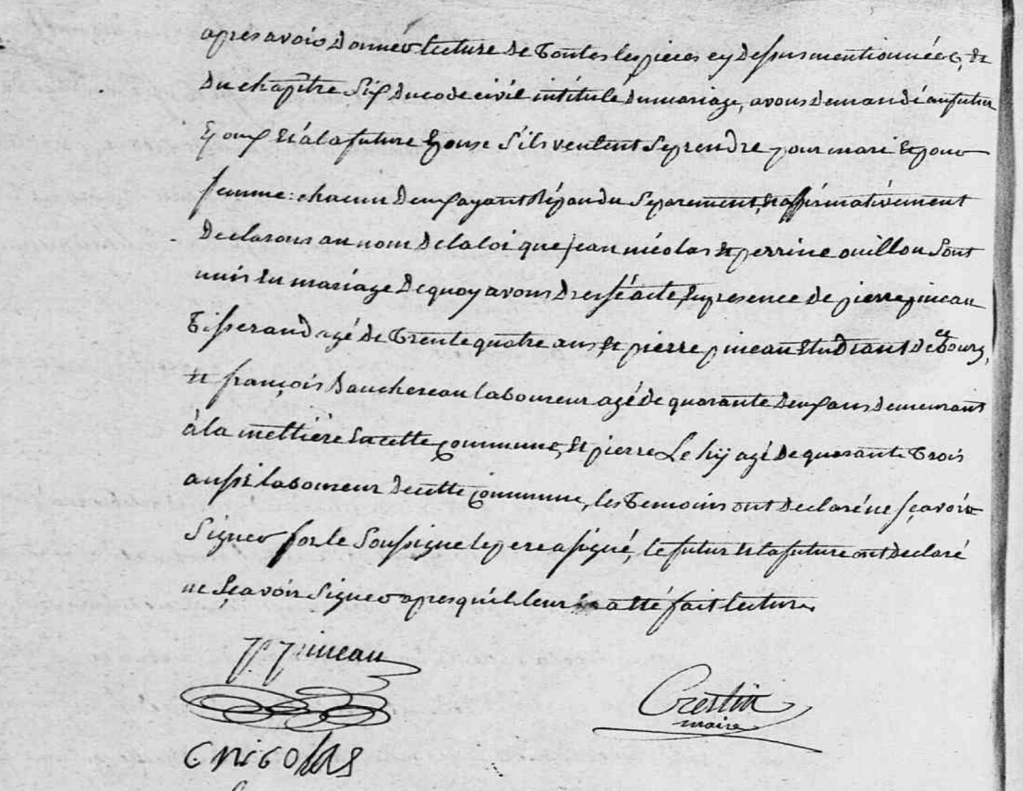 apres avoir donnée lecture de toutes les pieces cy dessus mentionnées, et
du chapitre six du code civil intitule du mariage, avons demandé au futur
Epoux et à la future Epouse s'ils veulent se prendre pour mari et pour
femme: chacun deux ayant répondu séparement, et affirmativement
declarons au nom de la loi que jean nicolas et perrine ouillon sont
unis en mariage de quoy avons dressé acte en presence de pierre pineau
tisserand agé de trente quatre ans et pierre pineau Etudiant de ce bourg,
et françois Bauchereau laboureur agé de quarante deux ans demeurant
à la mettière en cette commune, et pierre agé de quarante trois
ans laboureur de cette commune, les temoins ont declaré ne sçavoir
signer for le soussigne le pere a signé, le futur et la future ont declaré
ne sçavoir signer apres qu'il leur en a été fait lecture
pineau
Crestin
maire
nicolas